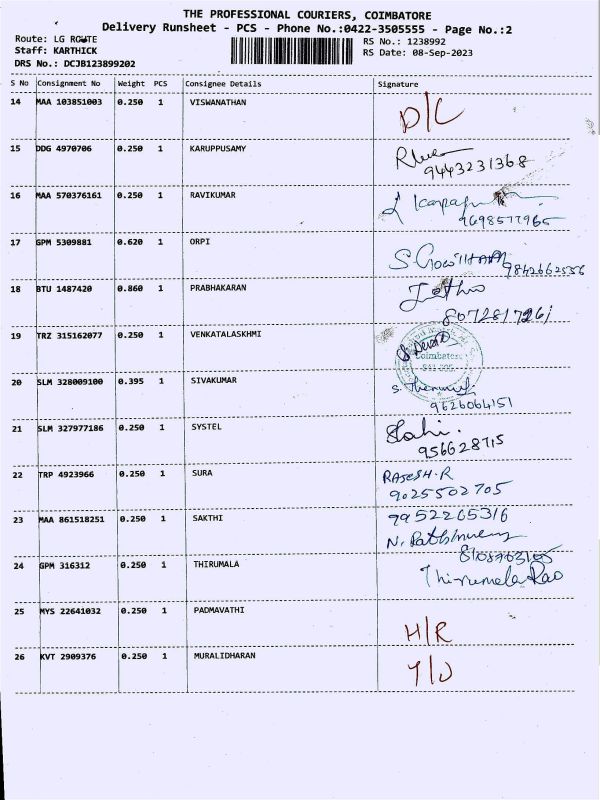 THE PROFESSIONAL COURIERS, COIMBATORE
Delivery Runsheet - PCS - Phone No.:0422-3505555 - Page No.:2
Route: LG ROUTE
RS No.: 1238992
Staff: KARTHICK
RS Date: 08-Sep-2023
DRS No.: DCJB123899202
S No Consignment No Weight PCS Consignee Details Signature
14 MAA 103851003 0.250 1 VISWANATHAN D/C
15 DDG 4970706 0.250 1 KARUPPUSAMY
9443231368
16 MAA 570376161 0.250 1 RAVIKUMAR
9698577965
17 GPM 5309881 0.620 1 ORPI S. GOWTHAM
9842662556
18 BTU 1487420 0.860 1 PRABHAKARAN
8072817261
19 TRZ 315162077 0.250 1 VENKATALASKHMI
Coimbatore
20 SLM 328009100 0.395 1 SIVAKUMAR
9626064151
21 SLM 327977186 0.250 1 SYSTEL
956628715
22 TRP 4923966 0.250 1 SURA RAJESH.R
9025502705
23 MAA 861518251 0.250 1 SAKTHI 9952265316
24 GPM 316312 0.250 1 THIRUMALA Thirumala Rao
25 MYS 22641032 0.250 1 PADMAVATHI H/R
26 KVT 2909376 0.250 1 MURALIDHARAN